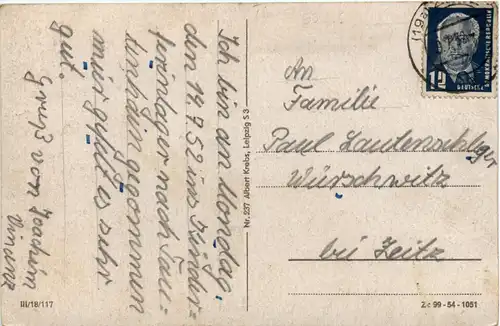 Ich bin am Montag,
den 19.7.52 ins Kinder-
ferienlager nach Tau-
tenhain gekommen
mir gefällt es sehr
gut.
Gruß von Joachim
Vinzenz
Nr. 237 Albert Krebs, Leipzig S 3
An
Familie
Paul Lautenschläger
Würchwitz
bei Zeitz
12
III/18/117
Zc 99-54-1051